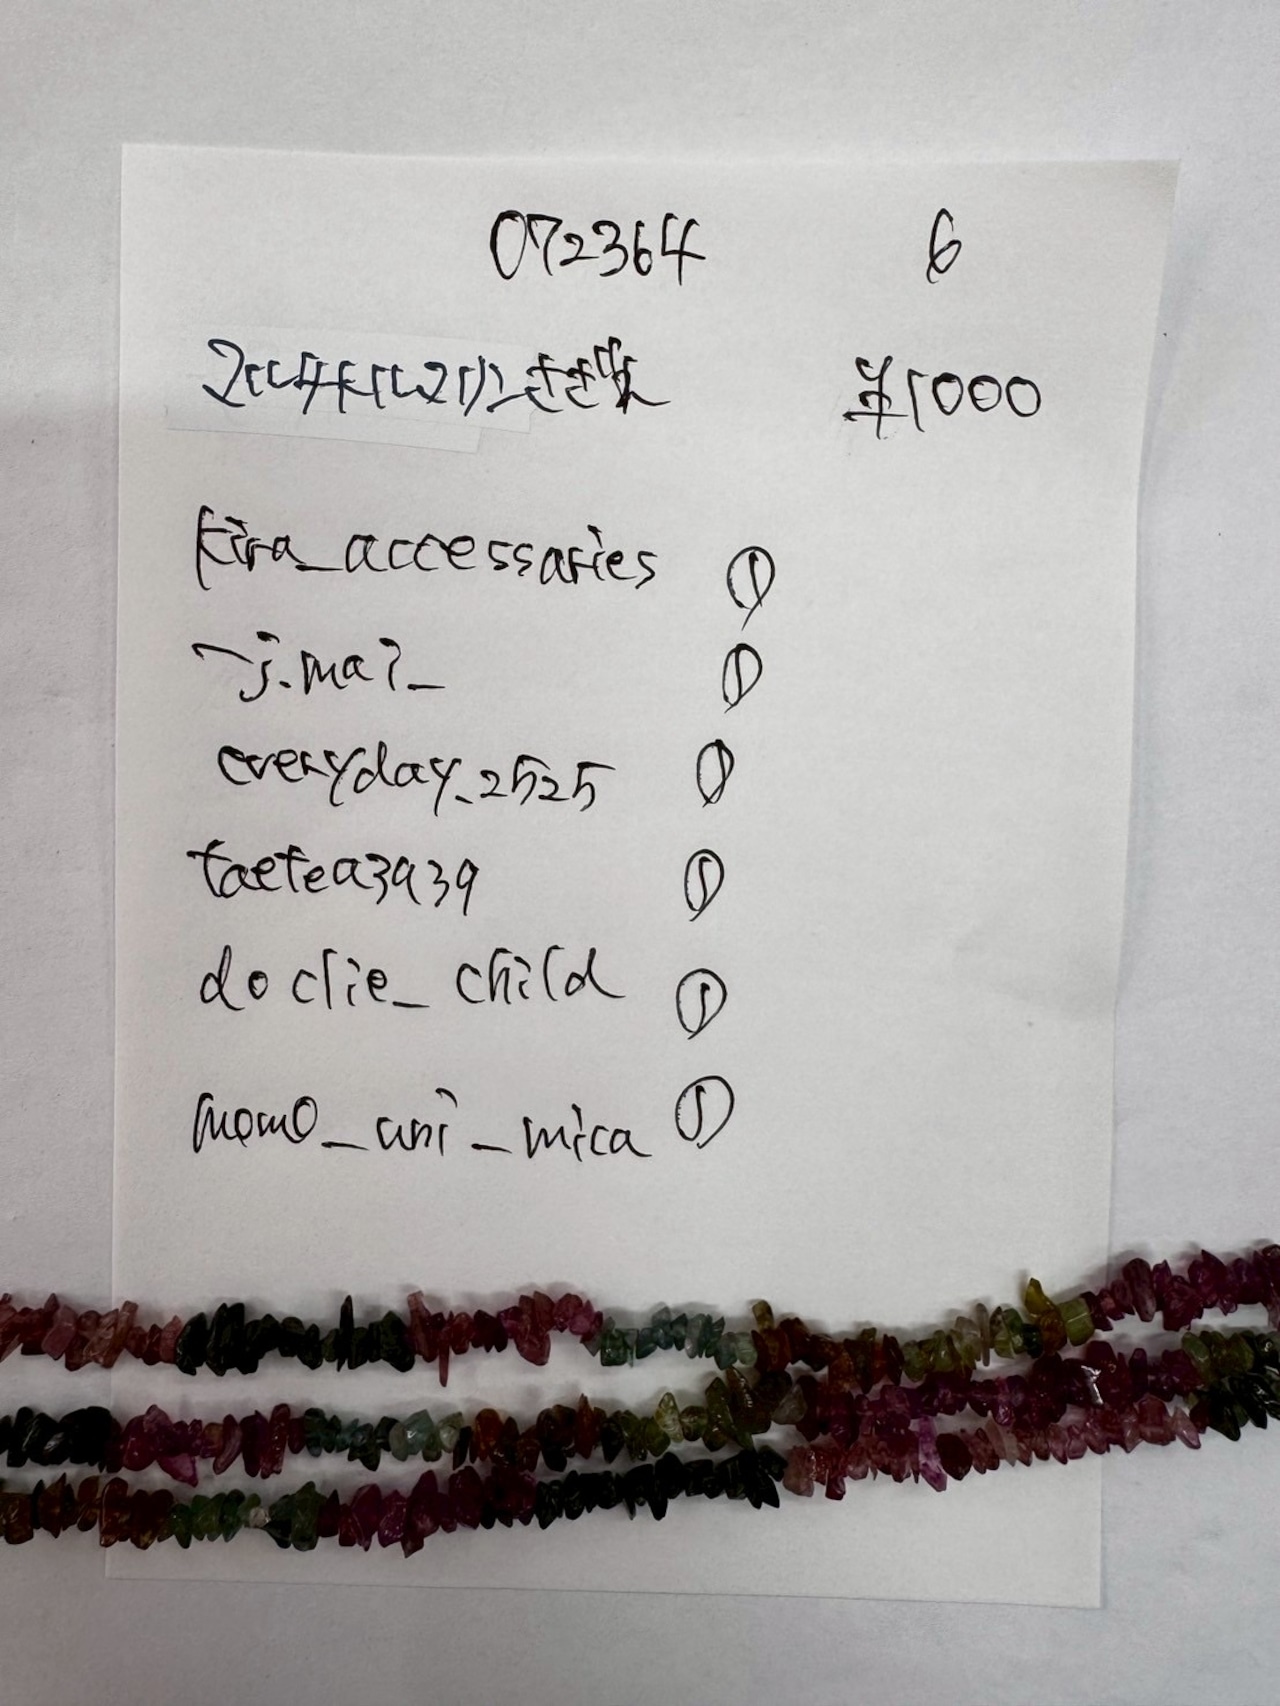 072364 6
¥1000
kira_accessaries ①
j.mai_ ①
everyday_2525 ①
taetea3939 ①
doclie_child ①
momo_uni_mica ①